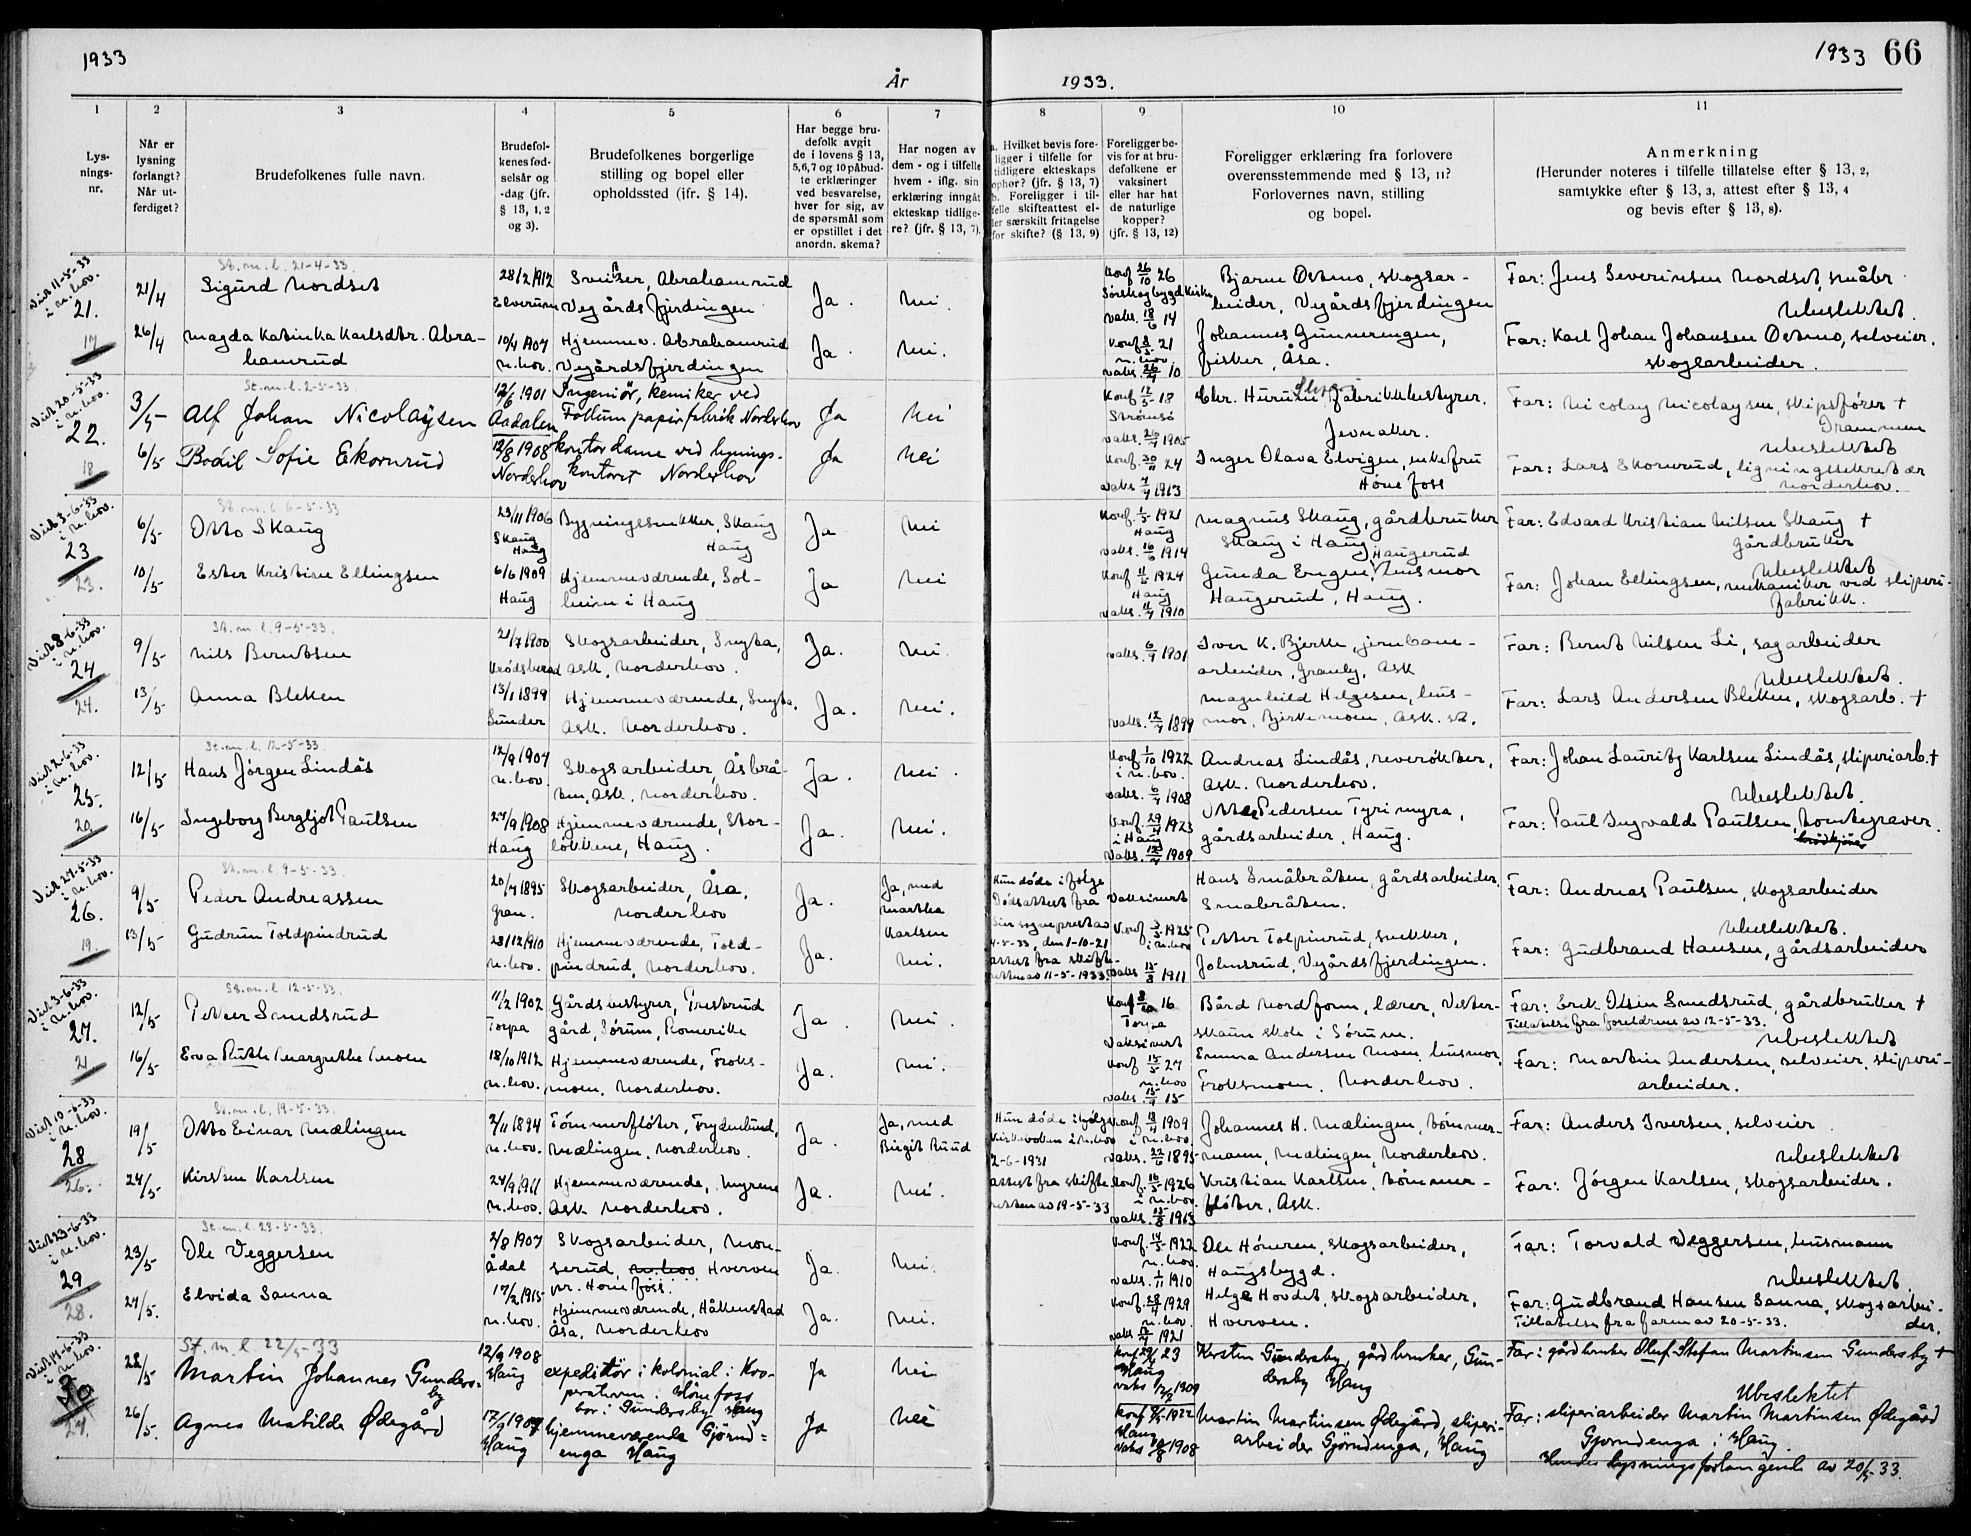 1933
År
1933.
1933 66
1
Lys-
nings-
nr.
2
Når er
lysning
forlangt?
Når ut-
ferdiget?
3
Brudefolkenes fulle navn.
4
Brudefol-
kenes fød-
selsår og
-dag (jfr.
§ 13, 1, 2
og 3).
5
Brudefolkenes borgerlige
stilling og bopel eller
opholdssted (jfr. § 14).
6
Har begge bru-
defolk avgit
de i lovens § 13,
5,6,7 og 10 påbud-
te erklæringer
ved besvarelse,
hver for sig, av
de spørsmål som
er opstillet i det
anordn. skema?
7
Har nogen av
dem - og i tilfelle
hvem - iflg. sin
erklæring inngåt
ekteskap tidlige-
re? (jfr. § 13, 7).
8
a. Hvilket bevis fore-
ligger i tilfelle for
tidligere ekteskaps
ophør? (jfr. § 13, 7)
b. Foreligger i til-
felle skifteattest el-
ler særskilt fritagelse
for skifte? (§ 13, 9)
9
Foreligger be-
vis for at bru-
defolkene er
vaksinert
eller har hat
de naturlige
kopper?
(jfr. § 13, 12)
10
Foreligger erklæring fra forlovere
overensstemmende med § 13, 11?
Forlovernes navn, stilling
og bopel.
11
Anmerkning
(Herunder noteres i tilfelle tillatelse efter § 13, 2,
samtykke efter § 13, 3, attest efter § 13, 4
og bevis efter § 13, 8).
Viet 11-5-33
i N.hov.
21.
17
St.m.l. 21-4-33.
21/4 Sigurd Nordset
28/2 1912
Elverum
Sveitser, Abrahamrud
Vegårdsfjerdingen
Ja. Nei.
Konf 26/10 26
Sørskogbygd kirke
vaks. 18/6 14
Bjarne Østmo, skogsar-
beider, Vegårdsfjerdingen
Far: Jens Severinsen Nordset, småbr.
Ubeslektet.
26/4 Magda Katinka Karlsdtr. Abra-
hamrud
10/4 1907
N.hov.
Hjemmev. Abrahamrud
Vegårdsfjerdingen
Ja. Nei.
N.hov.
Johannes Gunnerengen,
fisker, Åsa.
Far: Karl Johan Johansen Østmo, selveier,
skogsarbeider.
Viet 20-5-33
i N.hov.
22.
18
St.m.l. 2-5-33.
3/5 Alf Johan Nicolaysen
12/6 1901
Aadalen
Ingeniør, kemiker ved
Follum papirfabrik Norderhov
Ja Nei
Konf 12/5 18
Strømsø
vaks. 26/4 1905
Chr. Hurum, fabrikkbestyrer.
Jevnaker.
Far: Nicolay Nicolaysen, skipsfører †
Drammen
Ubeslektet
6/5 Bodil Sofie Ekornrud
12/8 1908
Norderhov
kontordame ved lignings-
kontoret Norderhov
Ja Nei
Konf. 30/11 24
vaks. 4/9 1913
Inger Olava Elvigen, enkefru
Hønefoss
Far: Lars Ekornrud, ligningssekretær
Norderhov.
Viet 3-6-33
i N.hov.
23
23.
St.m.l. 6-5-33
6/5 Otto Skaug
23/11 1906
Skaug
Haug
Bygningssnekker, Skaug
Haug
Ja Nei
Konf. 1/5 1921
Haug
vaks. 16/6 1914
Magnus Skaug, gårdbruker
Skaug i Haug
Far: Edvard Kristian Nilsen Skaug †
gårdbruker
Ubeslektet
10/5 Ester Kristine Ellingsen
6/6 1909
Haug
Hjemmeværende, Sol-
heim i Haug
Ja Nei
Konf 11/5 1924
Haug
vaks. 11/7 1910
Haugerud
Gunda Engen, husmor
Haugerud, Haug.
Far: Johan Ellingsen, mekaniker ved sliperi-
fabrikk.
Viet 8-6-33
i N.hov.
24
24.
St.m.l. 9-5-33.
9/5 Nils Berntsen
21/7 1900
Krødsherad
Skogsarbeider, Snyta,
Ask, Norderhov.
Ja. Nei.
vaks. 6/9 1901
Iver K. Bjerke, jernbane-
arbeider, Granly, Ask
Far: Bernt Nilsen Li, sagarbeider
Ubeslektet.
13/5 Anna Bleken
13/1 1899
Lunder
Hjemmeværende, Snyta,
Ask. Norderhov.
Ja. Nei.
vaks. 12/7 1899
Magnhild Helgesen, hus-
mor, Bjerkemoen, Ask. st.
Far: Lars Andersen Bleken, skogsarb. †
Viet 2-6-33
i N.hov.
25.
20.
St.m.l. 12-5-33.
12/5 Hans Jørgen Lindås
12/9 1907
N.hov.
Skogsarbeider, Åsbrå-
ten, Ask. Norderhov.
Ja. Nei.
Konf 1/10 1922
i N.hov.
vaks. 6/7 1908
Andreas Lindås, reverøkter,
Ask. Norderhov.
Far: Johan Lauritz Karlsen Lindås, sliperiarb. †
Ubeslektet.
16/5 Ingeborg Bergljot Paulsen
27/9 1908
Haug
Hjemmeværende, Stor-
løkkene, Haug.
Ja. Nei.
Konf. 29/4 1923
i Haug
vaks. 12/7 1909
Pedersen Tyrimyra,
gårdsarbeider, Haug.
Far: Paul Ingvald Paulsen, tomtegraver.
Viet 27-5-33
i N.hov.
26.
19.
St.m.l. 9-5-33.
9/5 Peder Andreassen
20/4 1895
Gran.
Skogsarbeider, Åsa,
Norderhov
Ja.
Ja, med
Martha
Karlsen
Hun døde ifølge
Dødsattest fra
sogneprest av
4-5-33, den 1-10-21
attest fra skifte-
retten av 11-5-1933.
Vaksinert
Hans Småbråten, gårdsarbeider,
Småbråten.
Far: Andreas Paulsen, skogsarbeider
Ubeslektet.
13/5 Gudrun Toldpindrud
28/12 1910
N.hov.
Hjemmeværende, Told-
pindrud, Norderhov.
Ja. Nei.
Konf. 3/5 1925
i N.hov
vaks 15/8 1911
Petter Tolpinrud, snekker,
Johnsrud, Vegårdsfjerdingen.
Far: Gudbrand Hansen, gårdsarbeider
Viet 3-6-33
i N.hov.
27.
21
St.m.l. 12-5-33.
12/5 Petter Smedsrud
11/2 1902
Torpa
Gårdsbestyrer, Prestrud
gård, Sørum, Romerike
Ja. Nei.
Konf 8/10 16
Torpa
Vaksinert
Bård Nordfonn, lærer, Vester-
skaun skole i Sørum.
Far: Erik Olsen Smedsrud, gårdbruker †
Tillatelse fra foreldrene av 12-5-33.
Ubeslektet
16/5 Eva Ruth Margrethe Moen
18/10 1912
N.hov.
Hjemmeværende, Froks-
moen, Norderhov.
Ja. Nei.
Konf 15/5 27
N.hov
vaks. 15/9 15
Emma Andersen Moen, husmor,
Froksmoen. Norderhov.
Far: Martin Andersen, selveier, sliperi-
arbeider.
Viet 10-6-33
i N.hov.
28
26.
St.m.l. 19-5-33.
19/5 Otto Einar Mælingen
2/11 1894
N.hov.
Tømmerfløter, Frydenlund,
Mælingen, Norderhov.
Ja.
Ja, med
Birgit Ruud
Hun døde ifølge
Kirkeboken i N.hov
2-6-1931
attest fra skifte-
retten av 19-5-33
Konf 18/4 1909
i N.hov.
vaks. 22/6 1895
Johannes H. Mælingen, tømmer-
mann, Mælingen, Norderhov.
Far: Anders Iversen, selveier.
Ubeslektet
24/5 Kirsten Karlsen
24/9 1911
N.hov.
Hjemmeværende, Myrene
Ask Norderhov.
Ja. Nei.
Konf. 16/5 1926
i N.hov.
vaks. 15/8 1913
Kristian Karlsen, tømmer-
fløter, Ask.
Far: Jørgen Karlsen, skogsarbeider.
Viet 23-6-33
i N.hov.
29
28.
St.m.l. 23-5-33.
23/5 Ole Veggersen
2/8 1907
Ådal
Skogsarbeider, Mon-
serud, N.hov Hverven
pr. Hønefoss.
Ja. Nei.
Konf. 14/5 1922
N.hov.
vaks. 1/11 1910
Ole Høneren, skogsarbeider,
Haugsbygd.
Far: Torvald Veggersen, husmann
Ubeslektet.
27/5. Elvida Sanna
17/2 1915
N.hov.
Hjemmeværende, Håkenstad
Åsa, Norderhov
Ja. Nei.
Konf. 28/4 1929
N.hov.
Helge Hovdet, skogsarbeider,
Hverven.
Far: Gudbrand Hansen Sanna, skogsarbei-
der.
Tillatelse fra faren av 20-5-33.
Viet 14-6-33
i N.hov.
30
27.
St.m.l. 22/5-33
22/5 Martin Johannes Gunders-
by
12/9 1908
Haug
expeditør i kolonial i Koo-
perativen i Hønefoss
bor i Gundersby Haug
Ja Nei
Haug
Kirsten Gundersby, gårdbruker, Gun-
dersby Haug
Far: gårdbruker Oluf Stefan Martinsen Gundersby †
Ubeslektet
26/5. Agnes Matilde Ødegård
Haug
hjemmeværende Gjørnd=
enga Haug
Ja Nei
Haug
Martin Martinsen Ødegård, sliperi-
arbeider Gjørndenga, Haug
Far: sliperiarbeider Martin Martinsen Ødegård
Gjørndenga i Haug.
Hendes lysningsforlangende av 20/5-33.